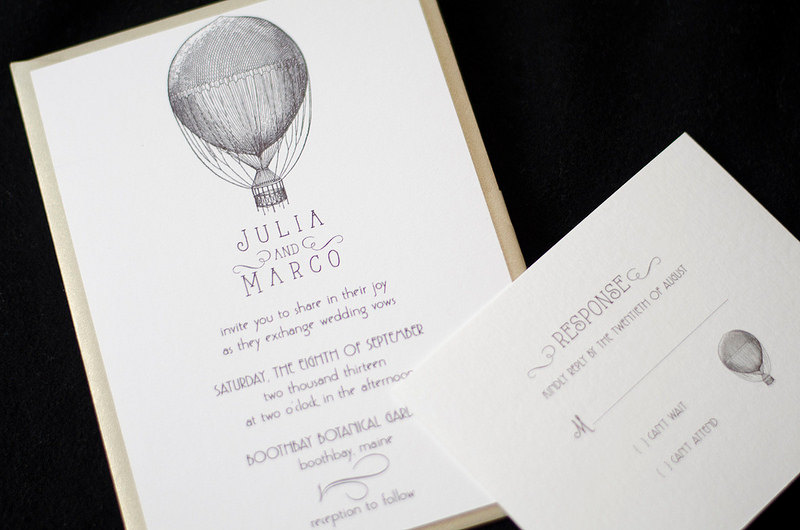 JULIA
AND
MARCO
invite you to share in their joy
as they exchange wedding vows
SATURDAY, THE EIGHTH OF SEPTEMBER
two thousand thirteen
at two o'clock in the afternoon
BOOTHBAY BOTANICAL GARD
boothbay, maine
reception to follow
RESPONSE
KINDLY REPLY BY THE TWENTIETH OF AUGUST
M
( ) CAN'T WAIT
( ) CAN'T ATTEND